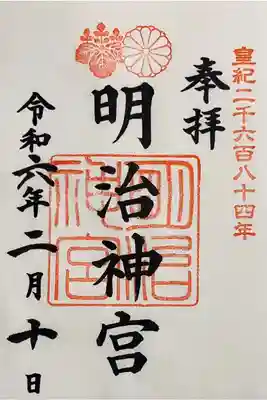 皇紀二千六百八十四年
奉拝
明治神宮
明治神宮
令和六年二月十日